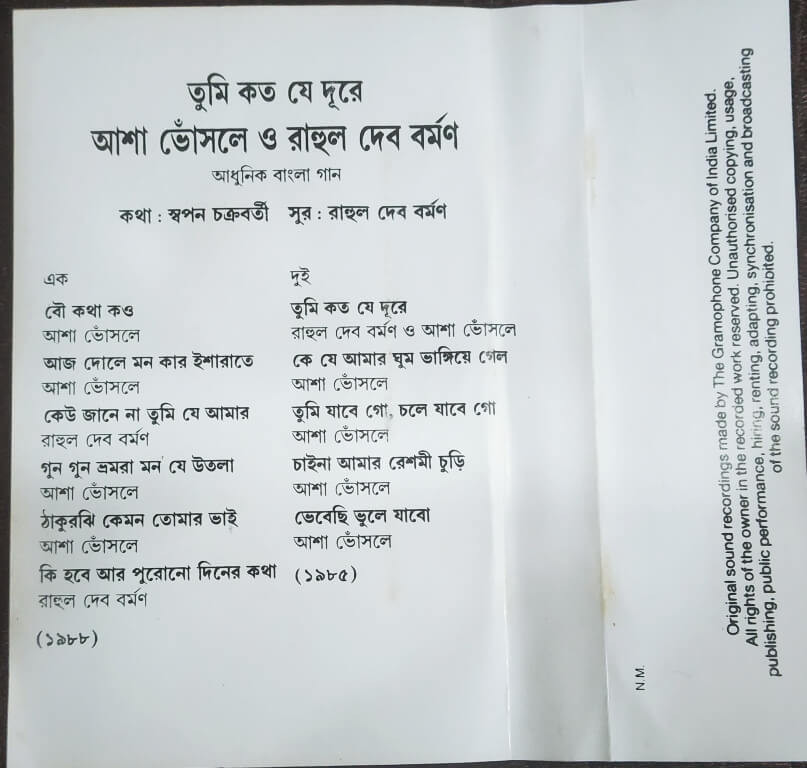 তুমি কত যে দূরে
আশা ভোঁসলে ও রাহুল দেব বর্মণ
আধুনিক বাংলা গান
কথা : স্বপন চক্রবর্তী সুর : রাহুল দেব বর্মণ
এক
বৌ কথা কও
আশা ভোঁসলে
আজ দোলে মন কার ইশারাতে
আশা ভোঁসলে
কেউ জানে না তুমি যে আমার
রাহুল দেব বর্মণ
গুন গুন ভ্রমরা মন যে উতলা
আশা ভোঁসলে
ঠাকুরঝি কেমন তোমার ভাই
আশা ভোঁসলে
কি হবে আর পুরোনো দিনের কথা
রাহুল দেব বর্মণ
(১৯৮৮)
দুই
তুমি কত যে দূরে
রাহুল দেব বর্মণ ও আশা ভোঁসলে
কে যে আমার ঘুম ভাঙ্গিয়ে গেল
আশা ভোঁসলে
তুমি যাবে গো, চলে যাবে গো
আশা ভোঁসলে
চাইনা আমার রেশমী চুড়ি
আশা ভোঁসলে
ভেবেছি ভুলে যাবো
আশা ভোঁসলে
(১৯৮৫)
Original sound recordings made by The Gramophone Company of India Limited.
All rights of the owner in the recorded work reserved. Unauthorised copying, usage,
publishing, public performance, hiring, renting, adapting, synchronisation and broadcasting
of the sound recording prohibited.
N.M.